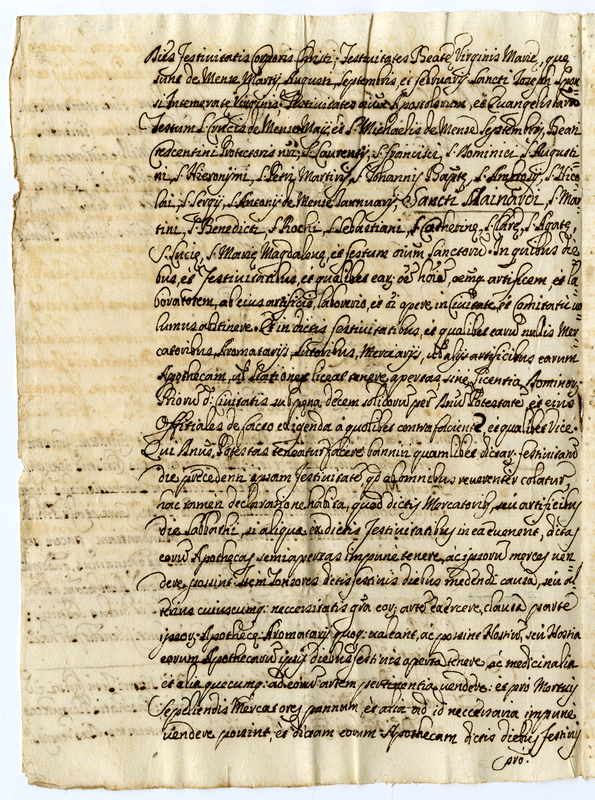 Dies Festivitatis Corporis Christi; Festivitates Beatę Virginis Marię, quę
sunt de Mense Martij Augusti, Septembris et februarij, Sancti Joseph Spon-
si Intemeratę Virginis. Festivitates oium Apostolorum, et Euangelistarum
Festum S. Crucis de Mense Maij, et S. Michaelis de Mense Septembris, Beati
Crescentini Protectoris nri, S. Laurentij, S. francisci, S. Dominici, S. Augusti
ni, S. Hieronymi, S. Petri Martiris, S. Johannis Baptę, S. Ambrosij, S. Nico
lai, S. Sergij, S. Antonij de Mense Januarij, Sancti Mainardi, S. Mar
tini, S. Benedicti, S. Rochi, S. Sebastiani, S. Catherinę, S. Clarę, S. Agatę,
S. Lucię, S. Marię Magdalenę, et festum oium Sanctorū. In quibus die
bus, et Festivitatibus, et qualibet ear, oē artificem, et la
boratorem, ab eius artificio, laborerio, et oi opere in Civitate, et Comitatu vo
lumus abstinere. Et in dictis festivitatibus, et qualibet earū nullis Mer
catoribus, Aromatarijs, Sutoribus, Merciarijs, vel alijs artificibus earum
Apothecam, vel stationem liceat tenere apertas sine licentia Dominor
Priorū d. Civitatis sub pęna decem solidorum per Dnū Potestatē, et eius
Offitiales de facto exigenda à quolibet contrafaciente, et qualibet vice.
Qui Dnūs Potestas teneatur facere bannir quamlibet dictar festivitatū
die precedenti ipsam Festivitatē, qd ab omnibus reverenter colatur,
hac tamen declaratione habita, quod dictis Mercatorib, seu artificibus
die sabbathi, si aliqua ex dictis Festivitatibus in ea evenerit, dictas
eorū Apothecas semiapertas impune tenere, ac ipsorū merces ven-
dere possint. Item Tonsores dictis festivis diebus medendi causa, seu al
terius cuiuscumq: neccessitatis gra eor, artē exercere, clausa parte
ipsor Apothecę. Aromatarij quoq: valeant, ac possint Hostiū, seu Hostia
eorum Apothecarū ipsis diebus festivis aperta tenere, ac medicinalia
et alia quecumq: ad eorū artem pertinentia vendere: et pro Mortuis
sepeliendis Mercatores pannum, et alia ad id neccessaria impune
vendere possint, et dictam eorum Apothecam dictis diebus festivis
pro.